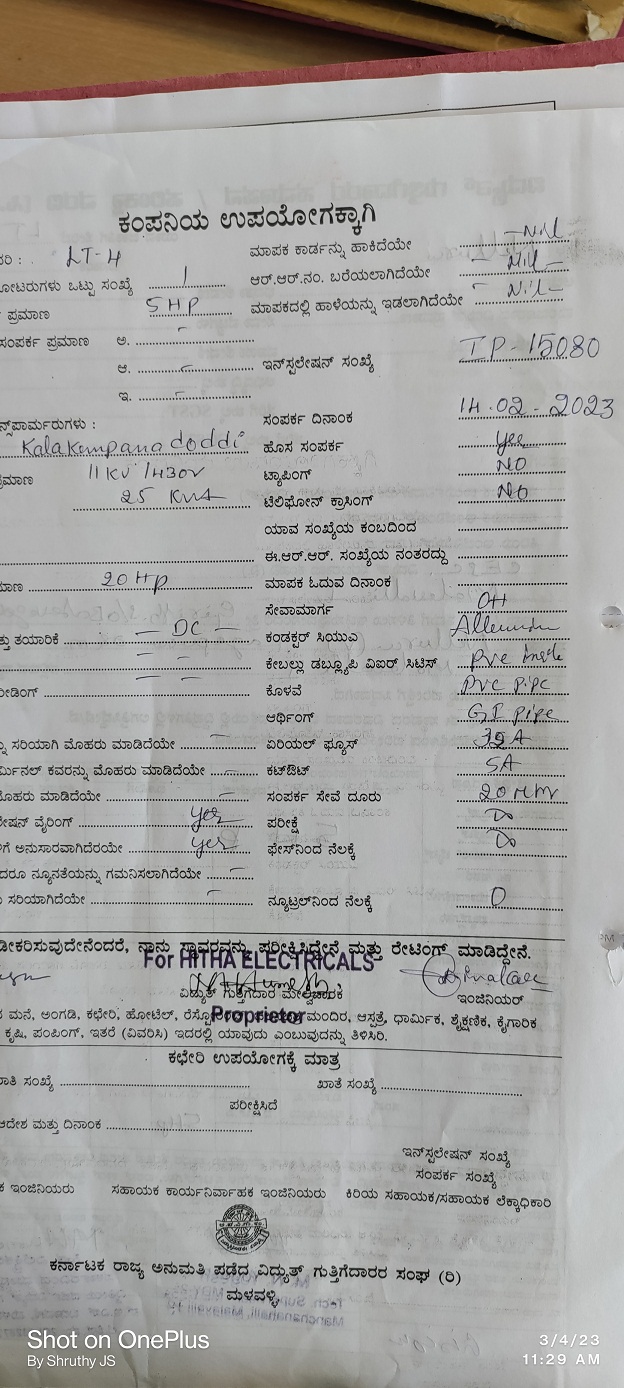 ಕಂಪನಿಯ ಉಪಯೋಗಕ್ಕಾಗಿ
ಮಾಪಕ ಕಾರ್ಡನ್ನು ಹಾಕಿದೆಯೇ —Nil
LT-4
ಆರ್.ಆರ್.ನಂ. ಬರೆಯಲಾಗಿದೆಯೇ Nil—
ಒಟ್ಟು ಸಂಖ್ಯೆ 1
ಮಾಪಕದಲ್ಲಿ ಹಾಳೆಯನ್ನು ಇಡಲಾಗಿದೆಯೇ Nil—
ಪ್ರಮಾಣ 5HP
ಸಂಪರ್ಕ ಪ್ರಮಾಣ ಅ.
ಆ.
ಇನ್‌ಸ್ಟಲೇಷನ್ ಸಂಖ್ಯೆ IP-15080
ಇ.
ಸಂಪರ್ಕ ದಿನಾಂಕ 14.02-2023
Kalakempanadoddi
ಹೊಸ ಸಂಪರ್ಕ yes
11KV/430V
ಟ್ಯಾಪಿಂಗ್ NO
25 KVA
ಟೆಲಿಫೋನ್ ಕ್ರಾಸಿಂಗ್ NO
ಯಾವ ಸಂಖ್ಯೆಯ ಕಂಬದಿಂದ
ಈ.ಆರ್.ಆರ್. ಸಂಖ್ಯೆಯ ನಂತರದ್ದು
20HP
ಮಾಪಕ ಓದುವ ದಿನಾಂಕ
ಸೇವಾಮಾರ್ಗ OH
ತಯಾರಿಕೆ — DC —
ಕಂಡಕ್ಟರ್ ಸಿಯುಎ
ಕೇಬಲ್ಲು ಡಬ್ಲ್ಯೂಪಿ ವಿಐರ್ ಸಿಟಿಸ್ PVC
ಕೊಳವೆ PVC pipe
ಆರ್ಥಿಂಗ್ GI pipe
ಸರಿಯಾಗಿ ಮೊಹರು ಮಾಡಿದೆಯೇ
ಏರಿಯಲ್ ಫ್ಯೂಸ್
ಕವರನ್ನು ಮೊಹರು ಮಾಡಿದೆಯೇ
ಕಟ್‌ಔಟ್ 5A
ಮಾಡಿದೆಯೇ
ಸಂಪರ್ಕ ಸೇವೆ ದೂರು
ವೈರಿಂಗ್ yes
ಪರೀಕ್ಷೆ
ಅನುಸಾರವಾಗಿದೆರಯೇ yes
ಫೇಸ್‌ನಿಂದ ನೆಲಕ್ಕೆ
ನ್ಯೂನತೆಯನ್ನು ಗಮನಿಸಲಾಗಿದೆಯೇ
ಸರಿಯಾಗಿದೆಯೇ
ನ್ಯೂಟ್ರಲ್‌ನಿಂದ ನೆಲಕ್ಕೆ 0
ನಾನು ಸ್ಥಾವರವನ್ನು ಪರೀಕ್ಷಿಸಿದ್ದೇನೆ ಮತ್ತು ರೇಟಿಂಗ್ ಮಾಡಿದ್ದೇನೆ.
For HITHA ELECTRICALS
ವಿದ್ಯುತ್ ಗುತ್ತಿಗೆದಾರ ಮೇಲ್ವಿಚಾರಕ
ಇಂಜಿನಿಯರ್
ಮನೆ, ಅಂಗಡಿ, ಕಛೇರಿ, ಹೋಟೆಲ್, ಮಂದಿರ, ಆಸ್ಪತ್ರೆ, ಧಾರ್ಮಿಕ, ಶೈಕ್ಷಣಿಕ, ಕೈಗಾರಿಕ
Proprietor
ಕೃಷಿ, ಪಂಪಿಂಗ್, ಇತರೆ (ವಿವರಿಸಿ) ಇದರಲ್ಲಿ ಯಾವುದು ಎಂಬುವುದನ್ನು ತಿಳಿಸಿರಿ.
ಕಛೇರಿ ಉಪಯೋಗಕ್ಕೆ ಮಾತ್ರ
ಸಂಖ್ಯೆ
ಖಾತೆ ಸಂಖ್ಯೆ
ಪರೀಕ್ಷಿಸಿದೆ
ಆದೇಶ ಮತ್ತು ದಿನಾಂಕ
ಇನ್‌ಸ್ಟಲೇಷನ್ ಸಂಖ್ಯೆ
ಸಂಪರ್ಕ ಸಂಖ್ಯೆ
ಇಂಜಿನಿಯರು ಸಹಾಯಕ ಕಾರ್ಯನಿರ್ವಾಹಕ ಇಂಜಿನಿಯರು ಕಿರಿಯ ಸಹಾಯಕ/ಸಹಾಯಕ ಲೆಕ್ಕಾಧಿಕಾರಿ
ಕರ್ನಾಟಕ ರಾಜ್ಯ ಅನುಮತಿ ಪಡೆದ ವಿದ್ಯುತ್ ಗುತ್ತಿಗೆದಾರರ ಸಂಘ (ರಿ)
ಮಳವಳ್ಳಿ
Shot on OnePlus
By Shruthy JS
3/4/23
11:29 AM